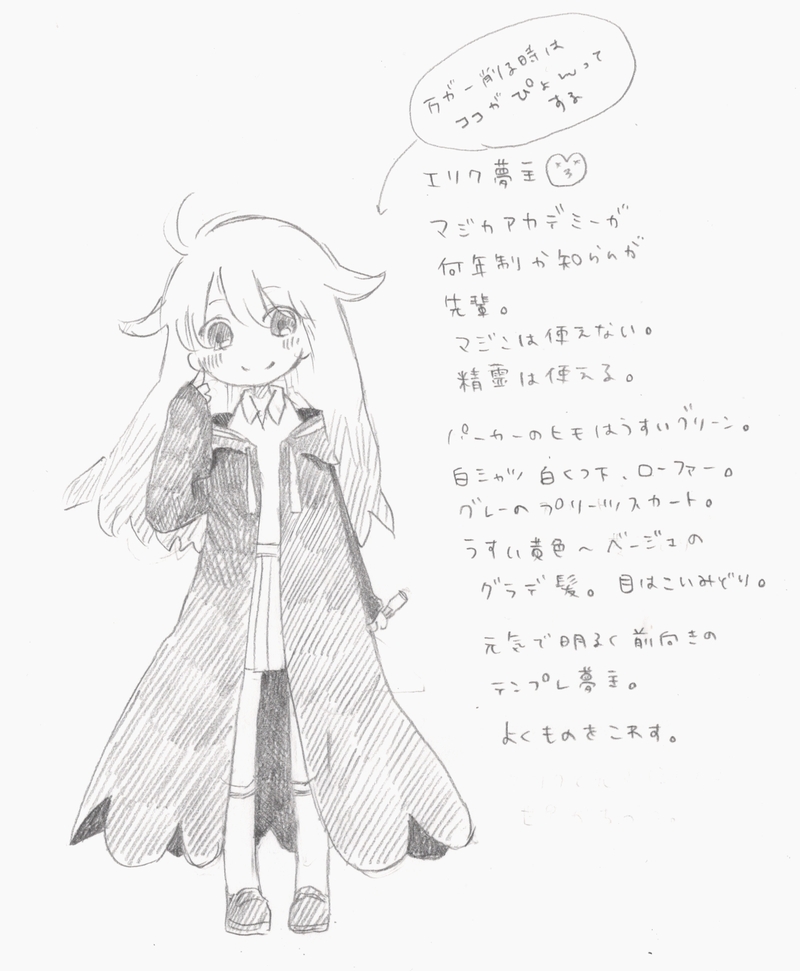 万が一削る時は
ココがぴょんって
する
エリク夢主
マジカアカデミーが
何年制か知らんが
先輩。
マジこは使えない。
精霊は使える。
パーカーのヒモはうすいグリーン。
白シャツ 白くつ下、ローファー。
グレーのプリーツスカート。
うすい黄色〜ベージュの
グラデ髪。目はこいみどり。
元気で明るく前向きの
テンプレ夢主。
よくものをこわす。